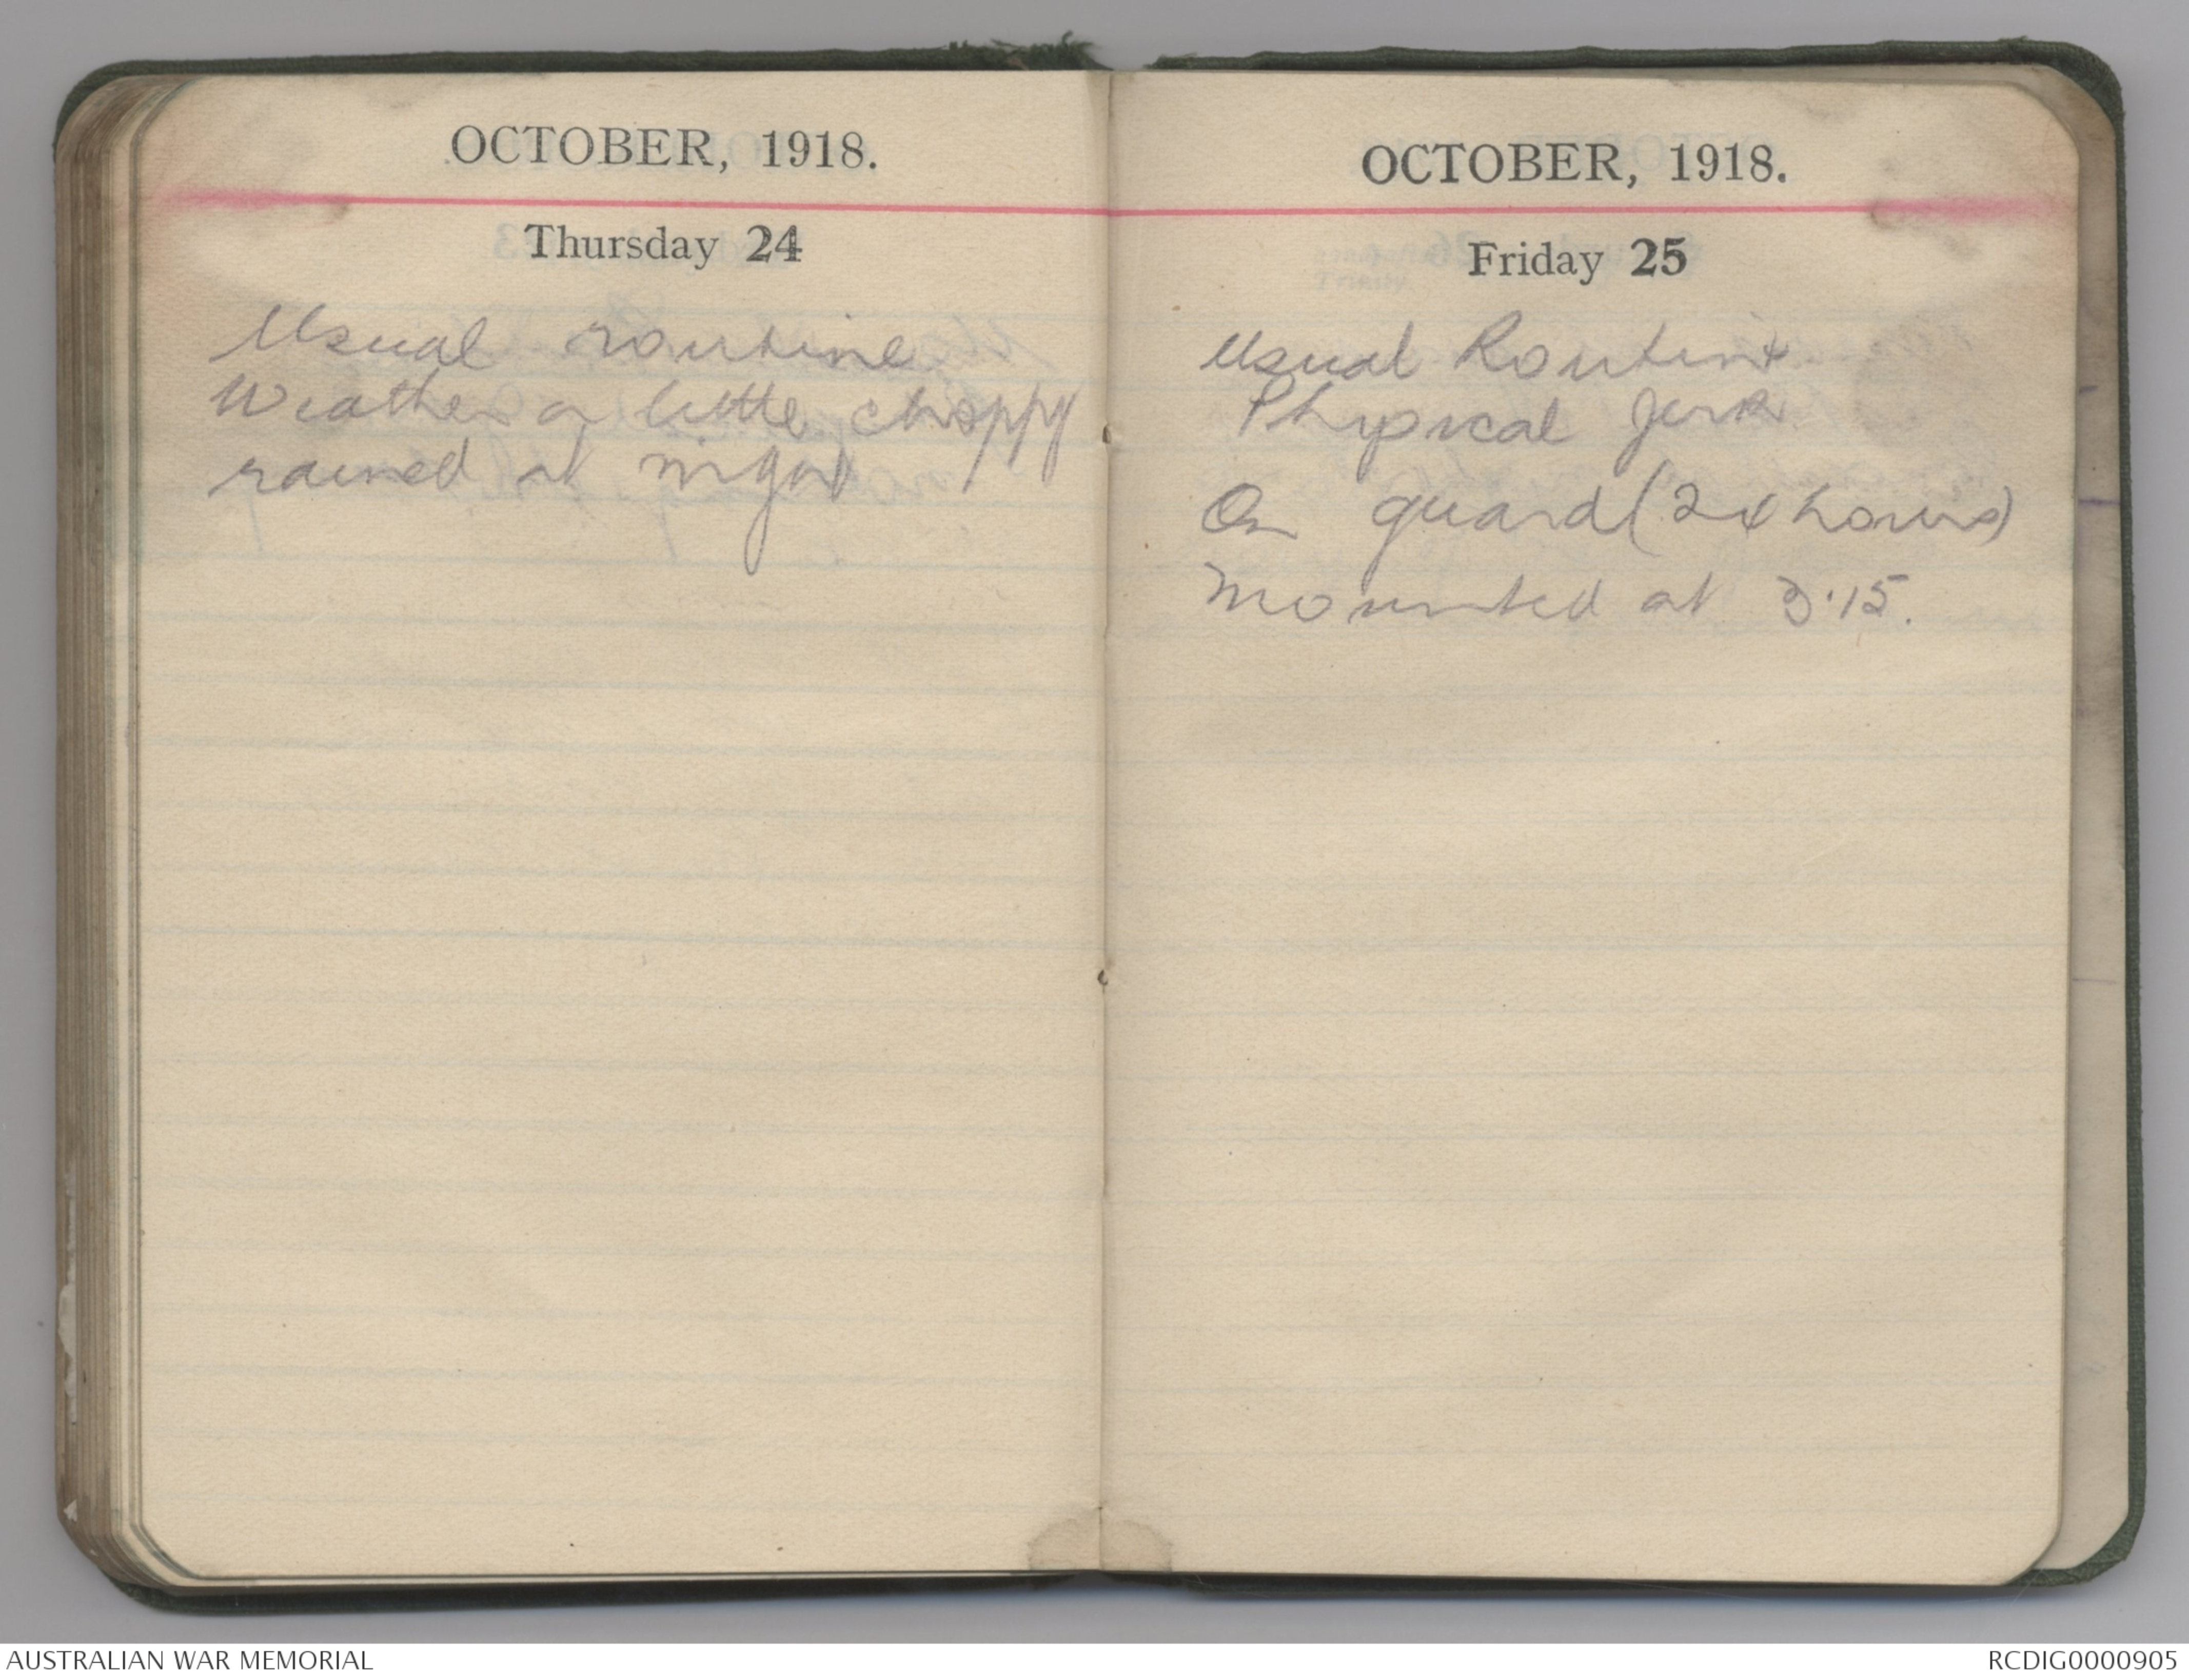 OCTOBER, 1918.
Thursday 24
Usual routine
Weather a little choppy
rained at night
OCTOBER, 1918.
Friday 25
Usual Routine
Physical Jerk
On guard (24 hours)
Mounted at 3.15.
AUSTRALIAN WAR MEMORIAL
RCDIG0000905